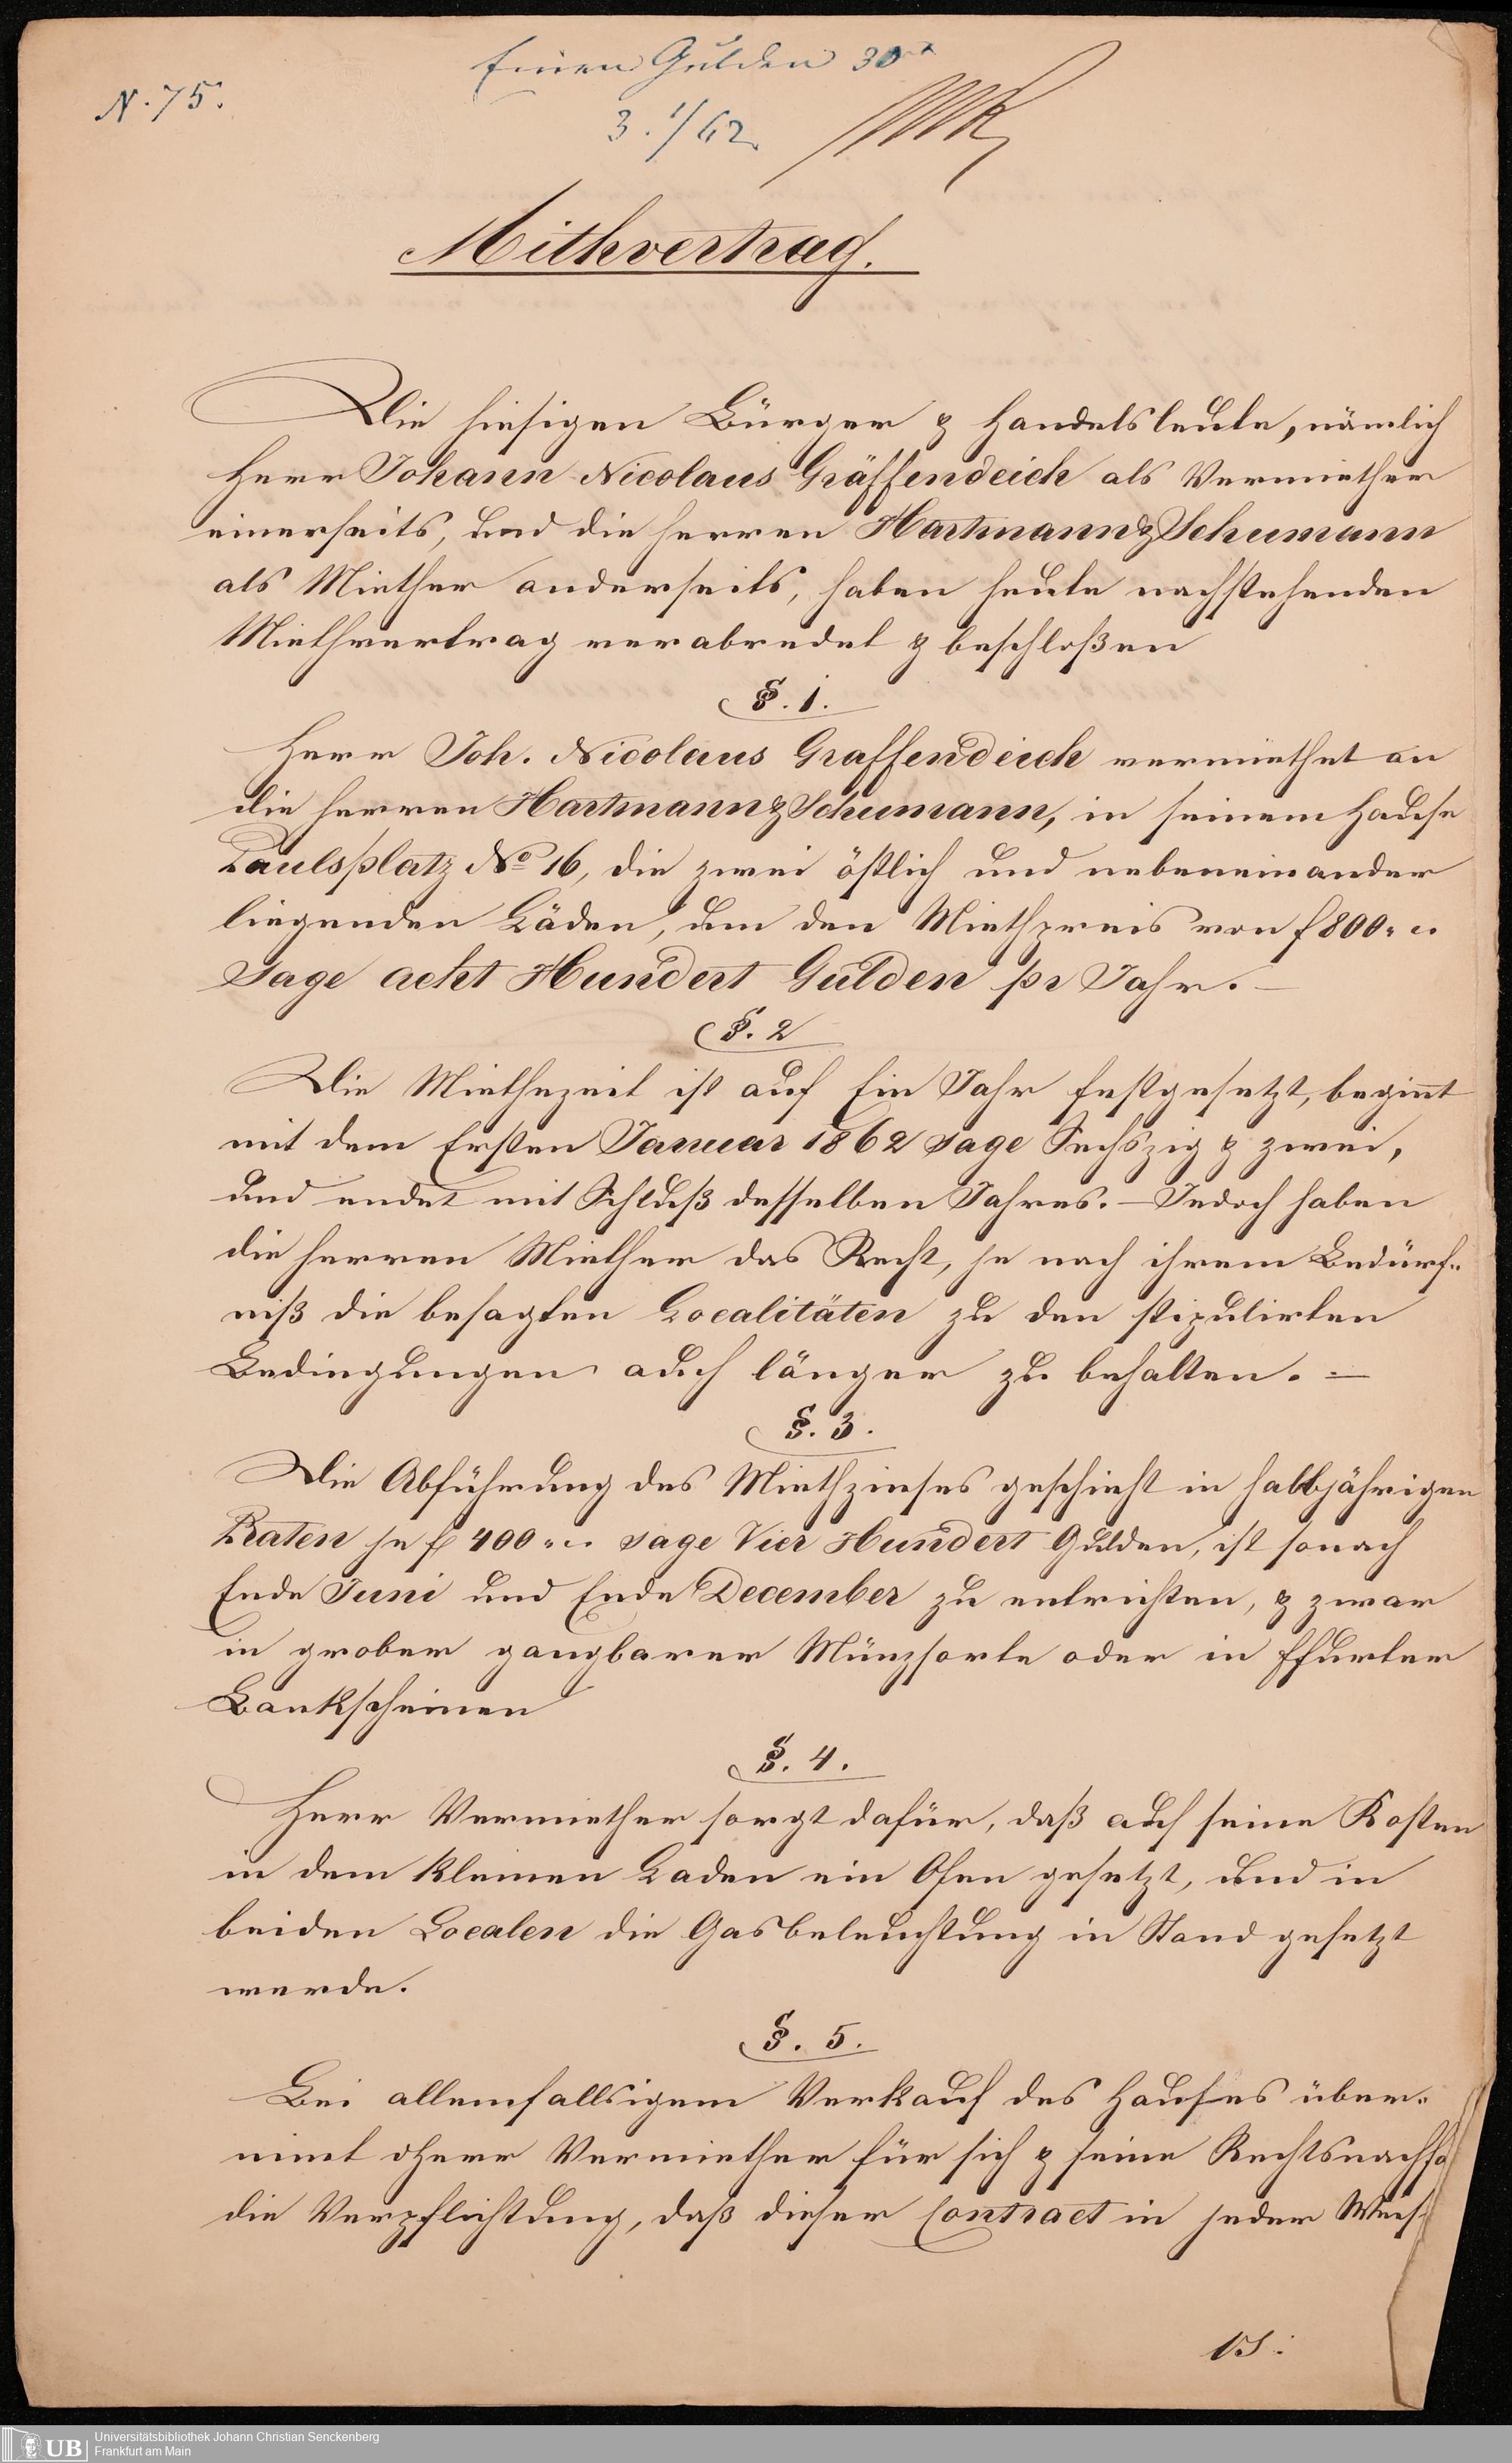 N. 75.
Einen Gulden 30 x
3. 1/62.
Mithvertrag.
Die hiesigen Bürger & Handelsleute, nämlich
Herr Johann Nicolaus Gräffendeich als Vermiether
einerseits, und die Herren Hartmann & Schumann
als Miether anderseits, haben heute nachstehenden
Miethvertrag verabredet & beschloßen
§. 1.
Herr Joh. Nicolaus Graffendeich vermiethet an
die Herren Hartmann & Schumann, in seinem Hause
Paulsplatz No 16, die zwei östlich und nebeneinander
liegenden Läden, um den Miethpreis von f 800. "
Sage acht Hundert Gulden pr Jahr. —
§. 2
Die Miethezeit ist auf Ein Jahr festgesetzt, begint
mit dem Ersten Januar 1862 sage Sechszig & zwei,
und endet mit Schluß desselben Jahres. — Jedoch haben
die Herren Miether das Recht, je nach ihrem Bedürf-
niß die besagten Localitäten zu den stipulirten
Bedingungen auch länger zu behalten. —
§. 3.
Die Abführung des Miethzinses geschieht in halbjährigen
Raten je f 400. " sage Vier Hundert Gulden, ist sonach
Ende Juni und Ende December zu entrichten, & zwar
in grober gangbarer Münzsorte oder in Ffurter
Bankscheinen
§. 4.
Herr Vermiether sorgt dafür, daß auf seine Kosten
in dem kleinen Laden ein Ofen gesetzt, und in
beiden Localen die Gasbeleuchtung in Stand gesetzt
werde.
§. 5.
Bei allenfallsigem Verkauf des Hauses über-
nimt Herr Vermiether für sich & seine Rechtsnachfo
die Verpflichtung, daß dieser Contract in jeder Weis
UB
Universitätsbibliothek Johann Christian Senckenberg
Frankfurt am Main